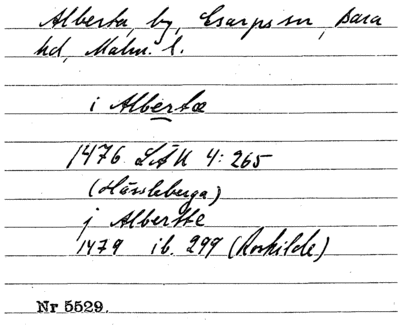 Alberta, by, Esarps sn, Bara
hd, Malm. l.
i Albertæ
1476 LÄU 4: 265
(Hässleberga)
j Alberthe
1479 ib. 299 (Roskilde)
Nr 5529.